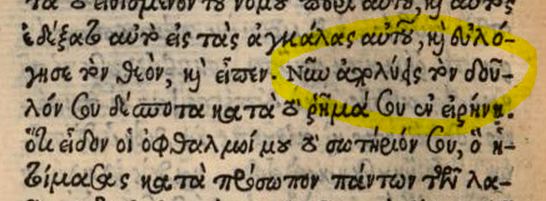 τὰ τὸ εἰθισμένον τοῦ νόμου περὶ αὐτοῦ, καὶ αὐτὸς
ἐδέξατο αὐτὸ εἰς τὰς ἀγκάλας αὐτοῦ, καὶ εὐλό-
γησε τὸν θεὸν, καὶ εἶπεν. Νῦν ἀπολύεις τὸν δοῦ-
λόν σου δέσποτα κατὰ τὸ ῥῆμά σου ἐν εἰρήνῃ.
ὅτι εἶδον οἱ ὀφθαλμοί μου τὸ σωτήριόν σου, ὃ ἡ-
τοίμασας κατὰ πρόσωπον πάντων τῶν λα-